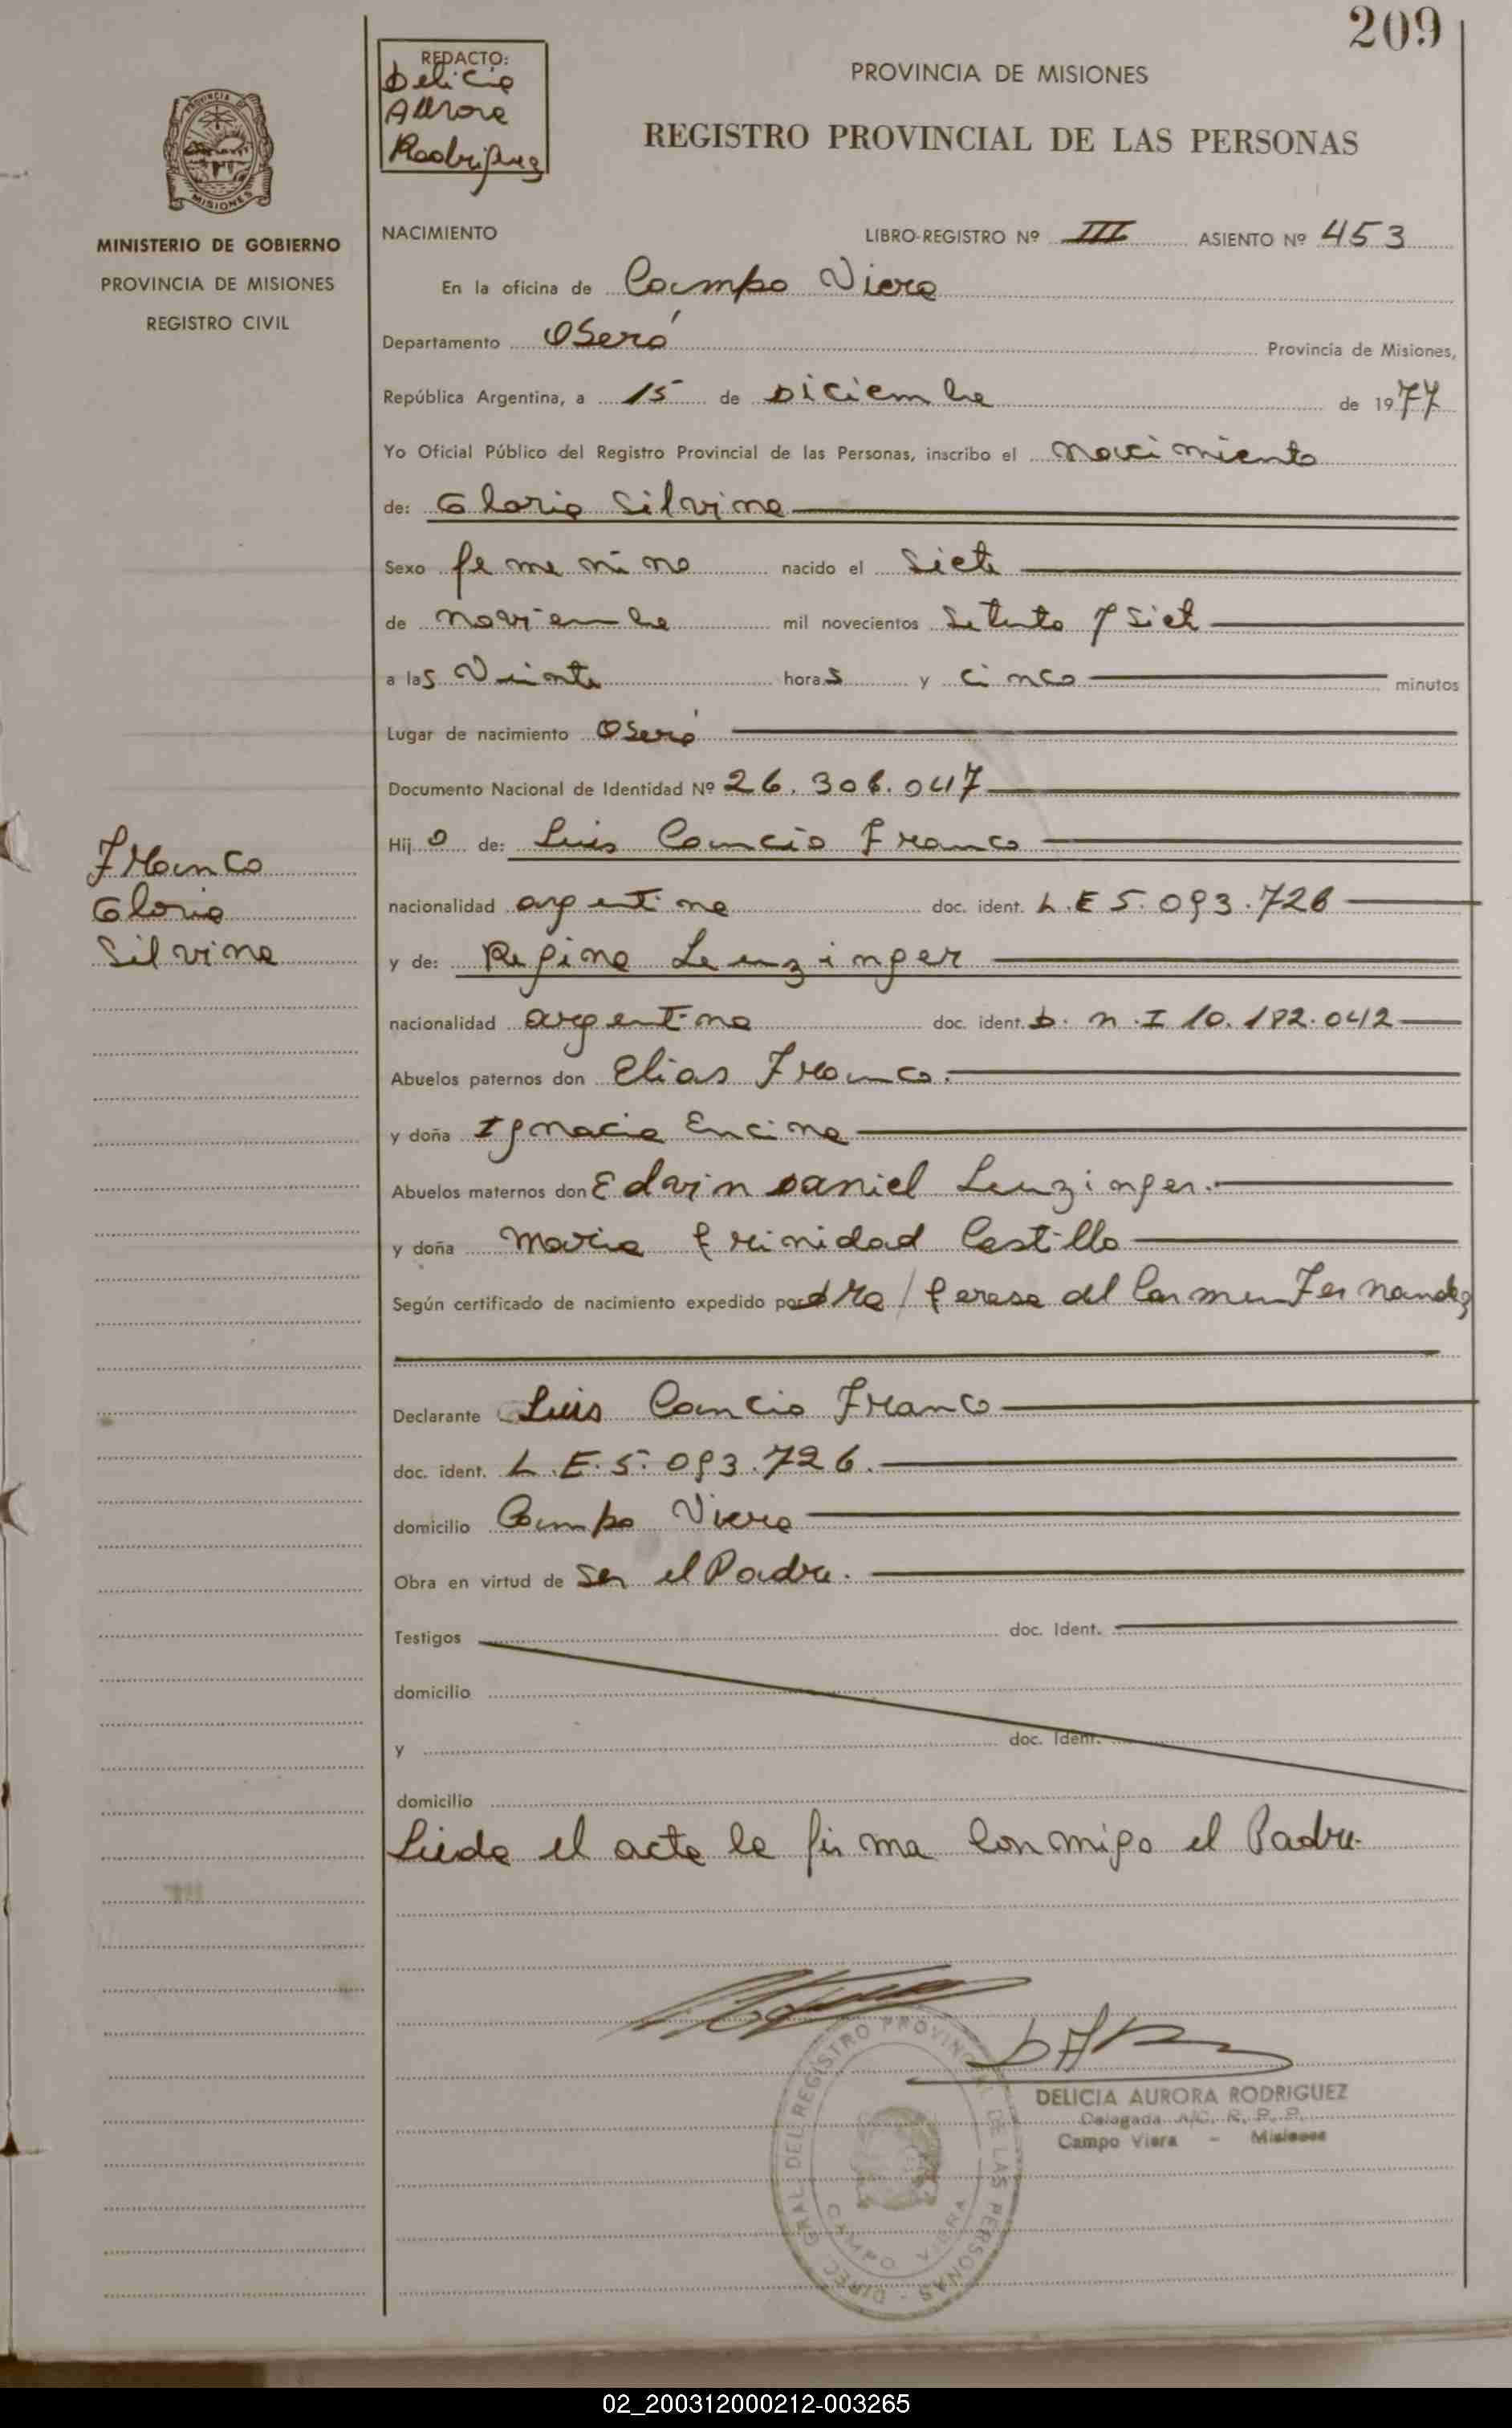 209
REDACTO:
Delicia
Aurora
Rodriguez
PROVINCIA DE MISIONES
REGISTRO PROVINCIAL DE LAS PERSONAS
PROVINCIA DE
MISIONES
MINISTERIO DE GOBIERNO
PROVINCIA DE MISIONES
REGISTRO CIVIL
NACIMIENTO LIBRO-REGISTRO Nº III ASIENTO Nº 453
En la oficina de Campo Viera
Departamento Oberá Provincia de Misiones,
República Argentina, a 15 de Diciembre de 1977
Yo Oficial Público del Registro Provincial de las Personas, inscribo el nacimiento
de: Gloria Silvina
Sexo femenino nacido el Siete
de noviembre mil novecientos Setenta y Siete
a las Veinte horas y cinco minutos
Lugar de nacimiento Oberá
Documento Nacional de Identidad Nº 26.306.047
Hija de: Luis Cancio Franco
nacionalidad argentina doc. ident. L E 5.093.726
y de: Regina Leuzinger
nacionalidad argentina doc. ident. D. N. I 10.182.042
Abuelos paternos don Elias Franco.
y doña Ignacia Encina
Abuelos maternos don Edvin Daniel Leuzinger.
y doña Maria Trinidad Castillo
Según certificado de nacimiento expedido por dra/ Teresa del Carmen Fernandez
Franco
Gloria
Silvina
Declarante Luis Cancio Franco
doc. ident. L.E. 5.093.726.
domicilio Campo Viera
Obra en virtud de Ser el Padre.
Testigos doc. Ident.
domicilio
y doc. Ident.
domicilio
Leida el acta la firma conmigo el Padre.
DELICIA AURORA RODRIGUEZ
Delegada A/C. R. P. P.
Campo Viera - Misiones
DIREC. GRAL. DEL REGISTRO PROVINCIAL DE LAS PERSONAS
CAMPO VIERA
02_200312000212-003265